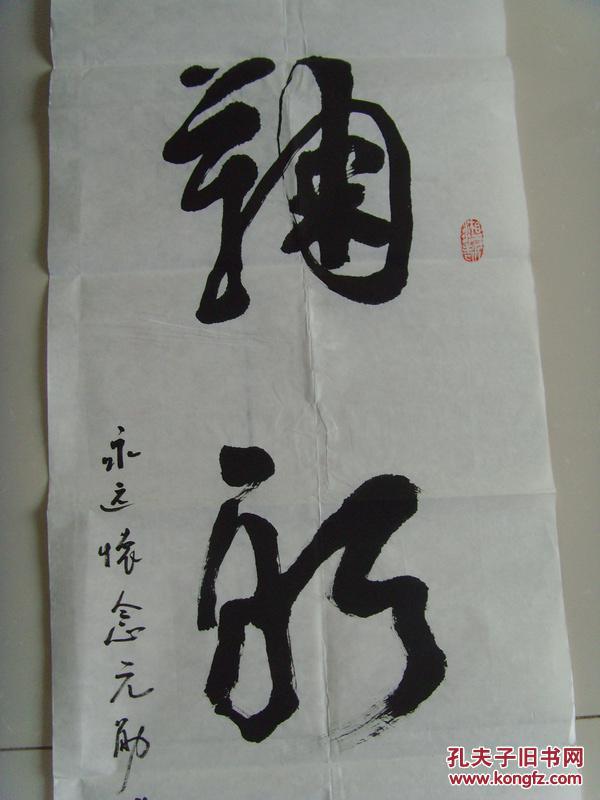 鞠躬
永远懷念元勋
孔夫子旧书网
www.kongfz.com